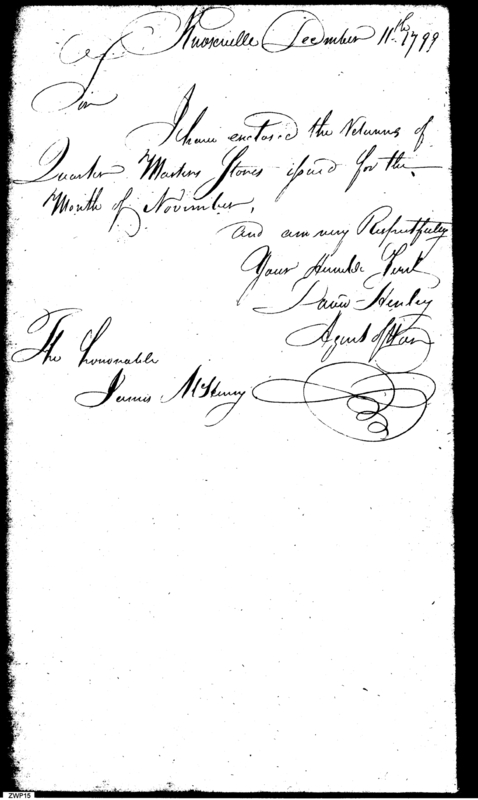 Knoxville December 11th 1799
Sir
I have enclosed the Returns of
Quarter Masters Stores issued for the
Month of November,
and am very Respectfully
Your Humble Servt
David Henley
Agent of War
The honorable
James McHenry
ZWP15